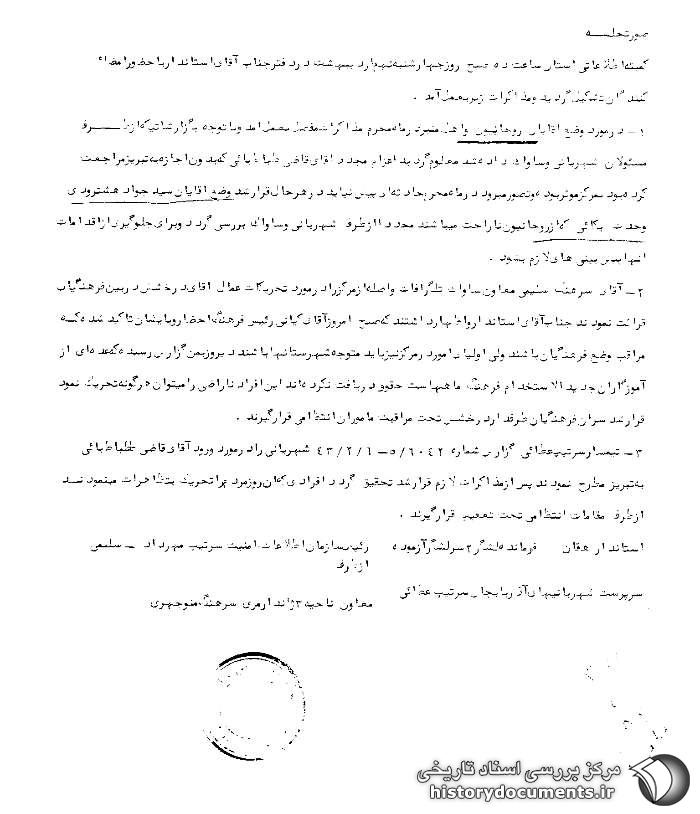 صورتجلســه
کمیته اطلاعاتی استان ساعت ده صبح روز چهارشنبه نهم اردیبهشت در دفتر جناب آقای استاندار با حضور امضاء
کنندگان تشکیل گردید و مذاکرات زیر بعمل آمد .
۱ – در مورد وضع آقایان روحانیون و اهل منبر در ماه محرم مذاکرات مفصل بعمل آمد و با توجه بگزارشاتیکه از طــــرف
مسئولان شهربانی و ساواک داده شد معلوم گردید اعزام مجدد آقای قاضی طباطبائی که بدون اجازه به تبریز مراجعت
کرده بود بمرکز موثر بوده و تصور میرود در ماه محرم حادثه ای پیش نیاید در هر حال قرار شد وضع آقایان سید جواد هشترودی
وحدت بکائی که از روحانیون ناراحت میباشند مجددا از طرف شهربانی و ساواک بررسی گردد و برای جلوگیری از اقدامات
آنها پیش بینی های لازم بشود .
۲ – آقای سرهنگ سلیمی معاون ساواک تلگرافات واصله از مرکز را در مورد تحریکات عمال آقای درخشش در بین فرهنگیان
قرائت نمودند جناب آقای استاندار اظهار داشتند که صبح امروز آقای کیانی رئیس فرهنگ احضار و بایشان تاکید شد که
مراقب وضع فرهنگیان باشند ولی اولیا امور در مرکز نیز باید متوجه شهرستانها باشند دیروز بمن گزارش رسیده که عده ای از
آموزگاران جدید الاستخدام فرهنگ ماههاست حقوق دریافت نکرده اند این افراد ناراضی را میتوان هرگونه تحریک نمود
قرار شد سران فرهنگیان طرفدار درخشش تحت مراقبت ماموران انتظامی قرار گیرند .
۳ – تیمسار سرتیپ عطائی گزارش شماره ۵/۶۰۴۲ – ۴۳/۲/۶ شهربانی را در مورد ورود آقای قاضی طباطبائی
به تبریز مطرح نمودند پس از مذاکرات لازم قرار شد تحقیق گردد افرادی که آن روز مردم را تحریک بتظاهرات مینمودنـــد
از طرف مقامات انتظامی تحت تعقیب قرار گیرند .
استاندار دهقان فرمانده لشگر ۲ سرلشگر آزموده رئیس سازمان اطلاعات و امنیت سرتیپ مهرداد – سلیمی
از طرف
سرپرست شهربانیهای آذربایجان سرتیپ عطائی
معاون ناحیه ۳ ژاندارمری سرهنگ منوچهری
مرکز بررسی اسناد تاریخی
historydocuments.ir